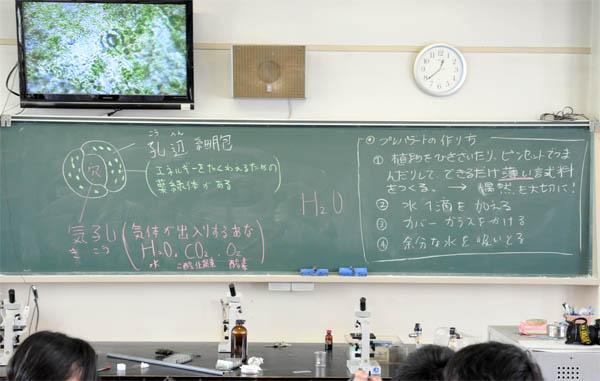 穴
こう へん
孔辺 細胞
(エネルギーをたくわえるための
葉緑体がある)
気孔
き こう
(気体が出入りするあな
H₂O、CO₂、O₂
水 二酸化炭素 酸素)
H₂O
◎ プレパラートの作り方
① 植物をひきさいたり、ピンセットでつま
んだりして、できるだけ薄い試料
をつくる。→ 偶然を大切に!
② 水1滴を加える
③ カバーガラスをかける
④ 余分な水を吸いとる